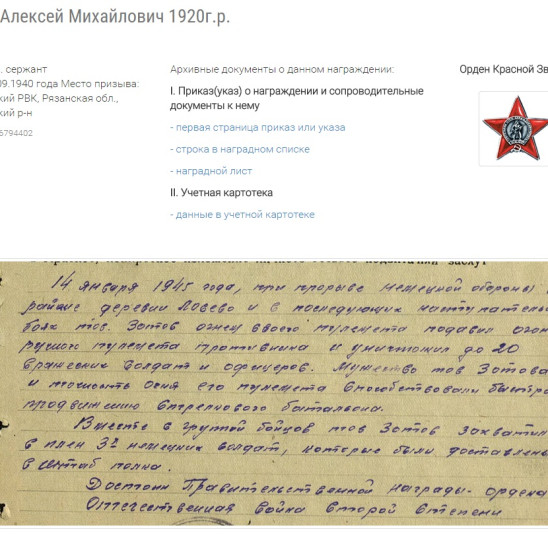 Алексей Михайлович 1920г.р.
. сержант
09.1940 года Место призыва:
кий РВК, Рязанская обл.,
кий р-н
6794402
Архивные документы о данном награждении:
I. Приказ(указ) о награждении и сопроводительные
документы к нему
- первая страница приказ или указа
- строка в наградном списке
- наградной лист
II. Учетная картотека
- данные в учетной картотеке
Орден Красной Зв
14 января 1945 года, при прорыве немецкой обороны в
районе деревни и в последующих наступатель
боях тов. Зотов огнем своего пулемета подавил огон
ручного пулемета противника и уничтожил до 20
вражеских солдат и офицеров. Мужество тов Зотова
и точность огня его пулемета способствовали быстро
продвижению стрелкового батальона.
Вместе с группой бойцов тов Зотов захватил
в плен 3х немецких солдат, которые были доставлены
в штаб полка.
Достоин Правительственной награды - ордена
Отечественная Война Второй Степени